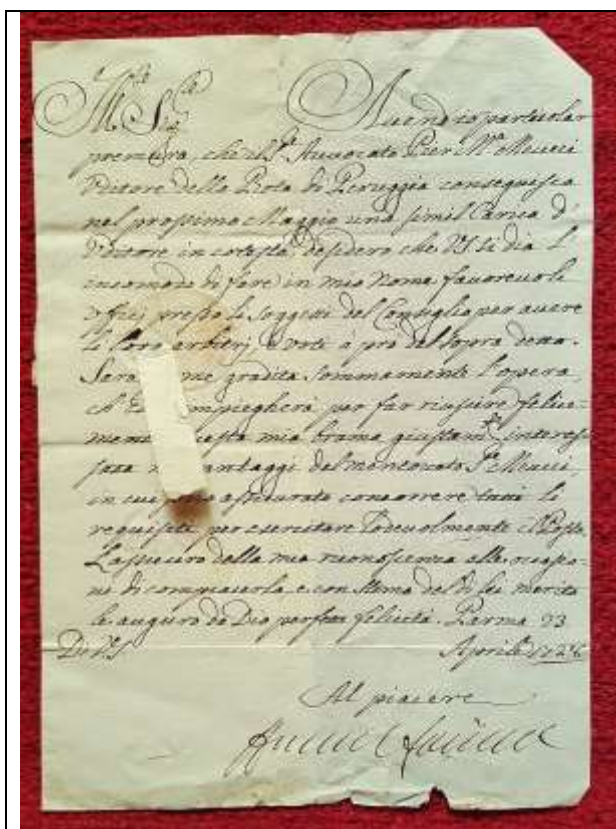 Sig.
Avendo io particolar
premura, che il Sr. Avvocato Pier
Uditore della Rota di Peruggia conseguisca
nel prossimo Maggio una simil Carica d'
Uditore in cotesta, desidero che VS. si dia l'
incomodo di fare in mio Nome favorevoli
uffici presso li Soggetti del Consiglio per avere
li loro arbitrj, e voti à prò del sopra detto.
Sarà me gradita sommamente l'opera,
impiegherà per far riuscire felice-
mia brama giustam.te interes
sata antaggi del mentovato Sr.
in cui assicurato concorrere tutti li
requisiti per esercitare
L'assicuro della mia riconoscenza alle occasio-
ni di compiacerla e con stima del di lei merito
le auguro da Dio perfetta felicità. Parma 23
Di VS Aprile 1726
Al piacere